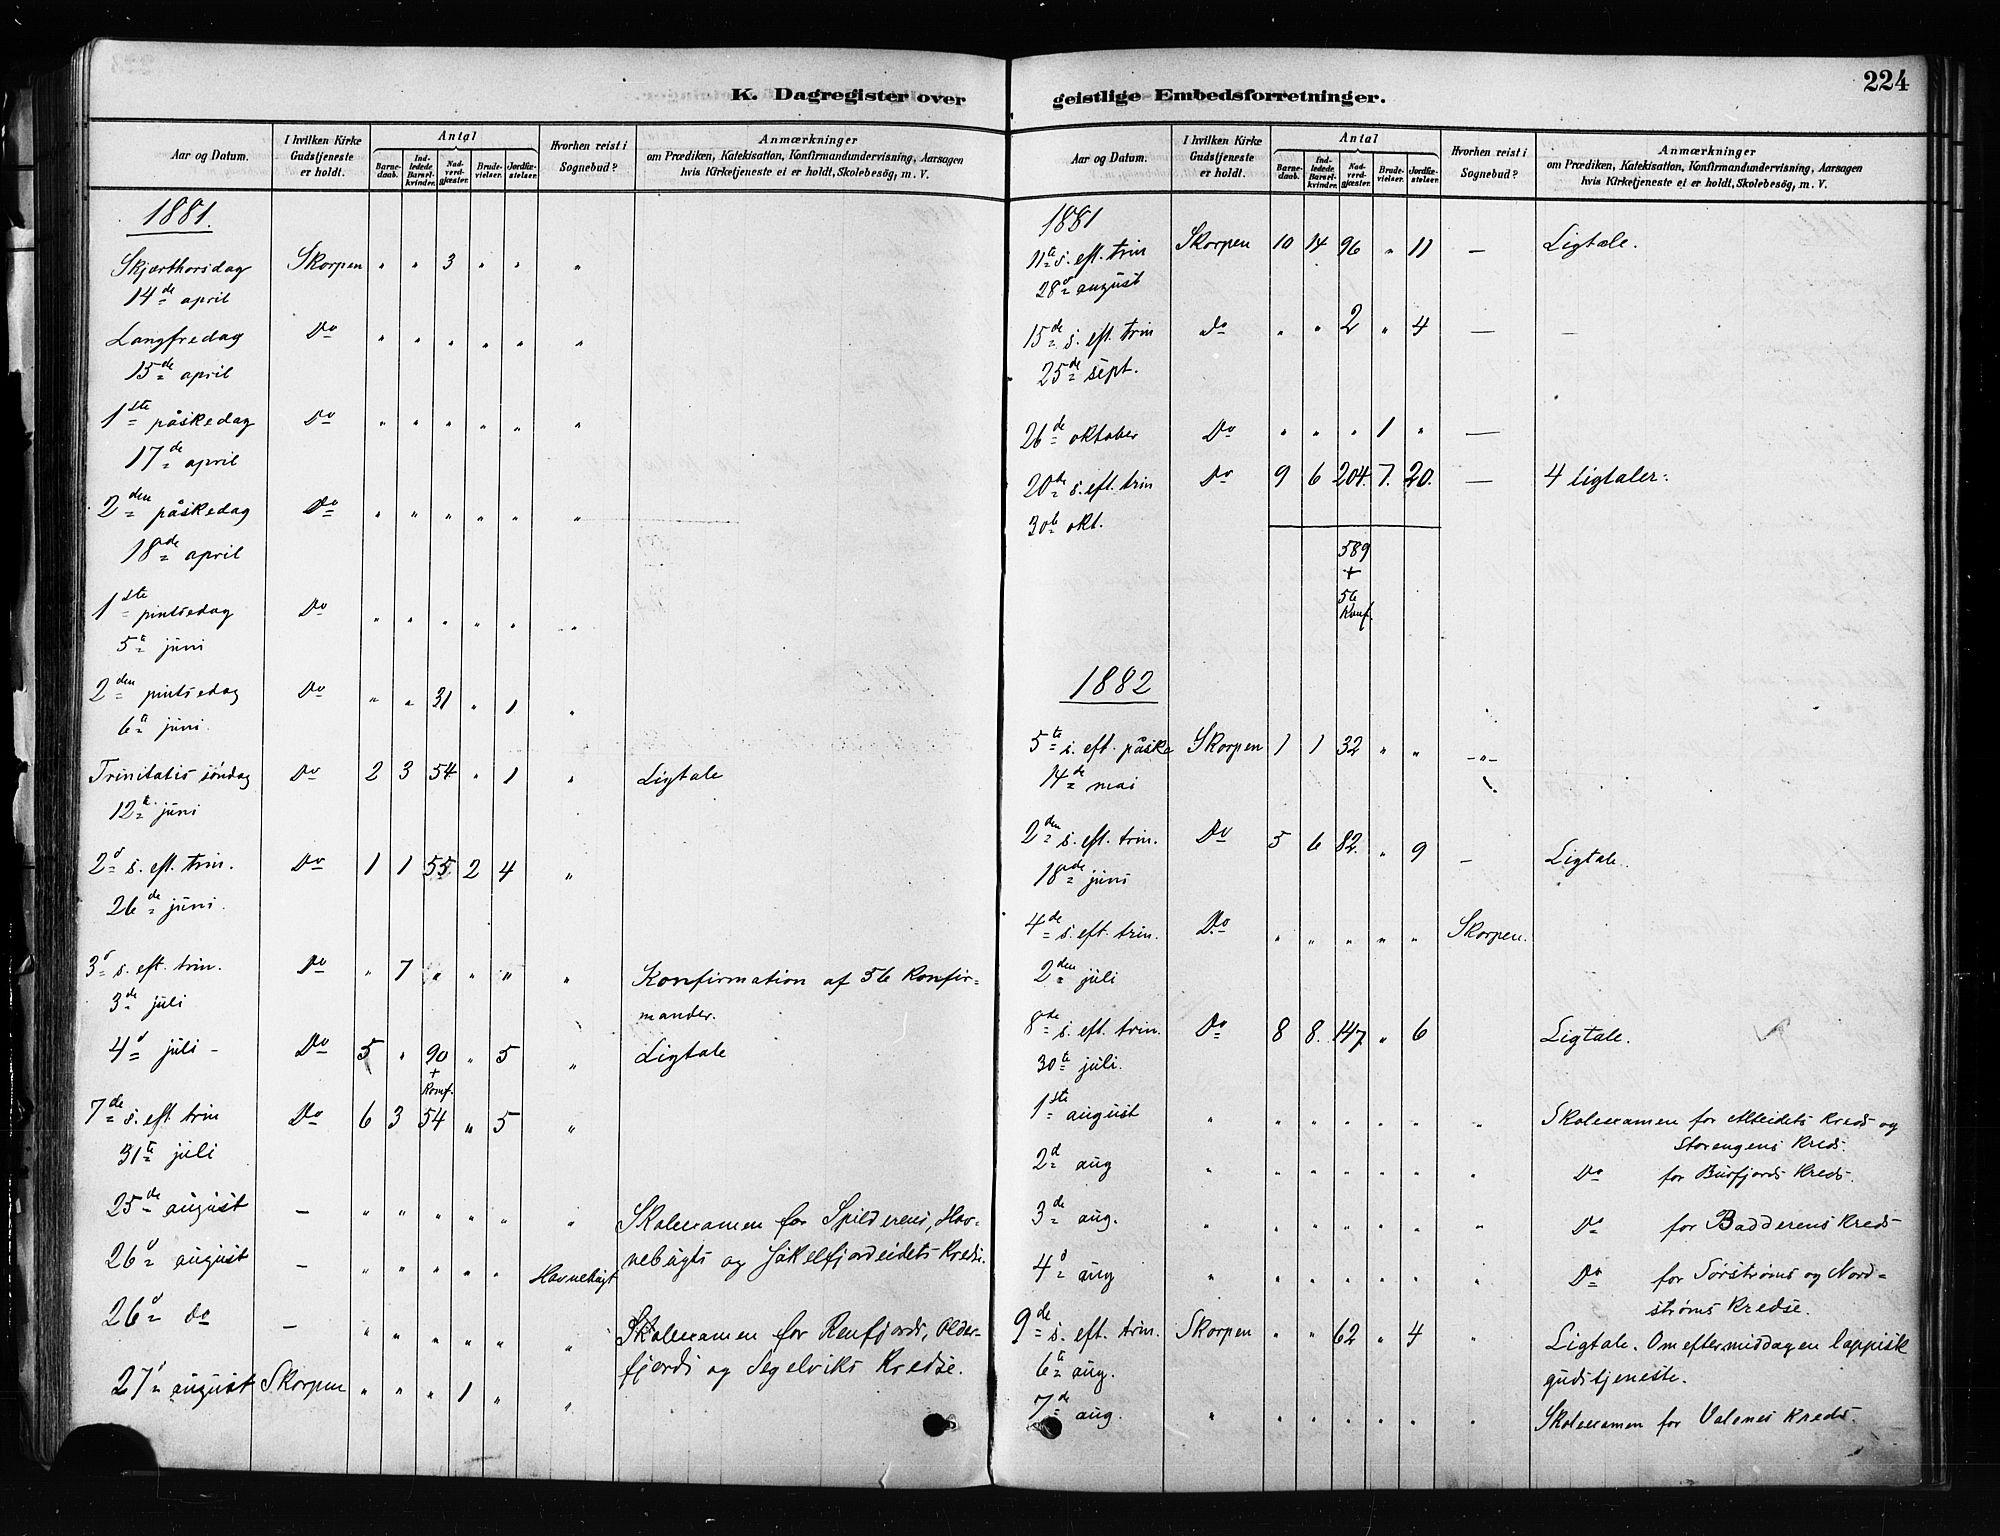 K. Dagregister over geistlige Embedsforretninger.
224
Aar og Datum.
I hvilken Kirke Gudstjeneste er holdt.
Antal
Barnedaab.
Indledede Barselkvinder.
Nadverdgjæster.
Brudevielser.
Jordfæstelser.
Hvorhen reist i Sognebud?
Anmærkninger
om Prædiken, Katekisation, Konfirmandundervisning, Aarsagen
hvis Kirketjeneste ei er holdt, Skolebesøg, m. V.
1881.
Skjærthorsdag Skorpen " " 3 " " "
14de april
Langfredag Do " " " " " "
15de april
1ste påskedag Do " " " " " "
17de april
2den påskedag Do " " " " " "
18de april
1ste pintsedag Do " " " " " "
5te juni
2den pintsedag Do " " 31 " 1 "
6te juni.
Trinitatis söndag Do 2 3 54 " 1 " Ligtale
12te juni
2d s. eft. trin. Do 1 1 55 2 4 "
26de juni.
3d s. eft. trin. Do " 7 " " " " Konfirmation af 56 Konfir-
3de juli mander.
4d juli - Do 5 " 90 " 5 " Ligtale
+
Konf.
7de s. eft. trin Do 6 3 54 " 5 "
31te juli
25de august — " " " " " " Skolexamen for Spilderens, Hav-
26d august — " " " " " Havnebugt nebugts og Jökelfjordeidets Kredse.
26d do — " " " " " " Skolexamen for Reinfjords, Older-
fjords og Segelviks Kredse.
27d august Skorpen " " " 1 " "
Aar og Datum.
I hvilken Kirke Gudstjeneste er holdt.
Antal
Barnedaab.
Indledede Barselkvinder.
Nadverdgjæster.
Brudevielser.
Jordfæstelser.
Hvorhen reist i Sognebud?
Anmærkninger
om Prædiken, Katekisation, Konfirmandundervisning, Aarsagen
hvis Kirketjeneste ei er holdt, Skolebesøg, m. V.
1881
11te s. eft. trin Skorpen 10 14 96 " 11 — Ligtale.
28d august
15de s. eft. trin do " " 2 " 4 — —
25de sept.
26de oktober Do " " " 1 " —
20de s. eft. trin Do 9 6 204. 7. 20. — 4 ligtaler.
30te okt.
589
+
56
Konf.
1882
5te s. eft. påske Skorpen 1 1 32 " " -"-
14de mai
2den s. eft. trin. Do 5 6 82. " 9 — Ligtale.
18de juni
4de s. eft. trin. Do " " " " " Skorpen.
2den juli
8de s. eft. trin. Do 8 8. 147. " 6 Ligtale.
30te juli.
1ste august " " " " " " " Skolexamen for Alteidets Kreds og
Storengens Kreds.
2d aug " " " " " " " Do for Burfjords Kreds.
3de aug. " " " " " " " Do for Badderens Kreds
4d aug " " " " " " " Do for Sørstrøms og Nord-
strøms Kredse.
9de s. eft. trin. Skorpen " " 62 " 4 " Ligtale. Om eftermiddagen lappisk
6te aug. gudstjeneste.
7de aug. " " " " " " " Skolexamen for Valnes Kreds.